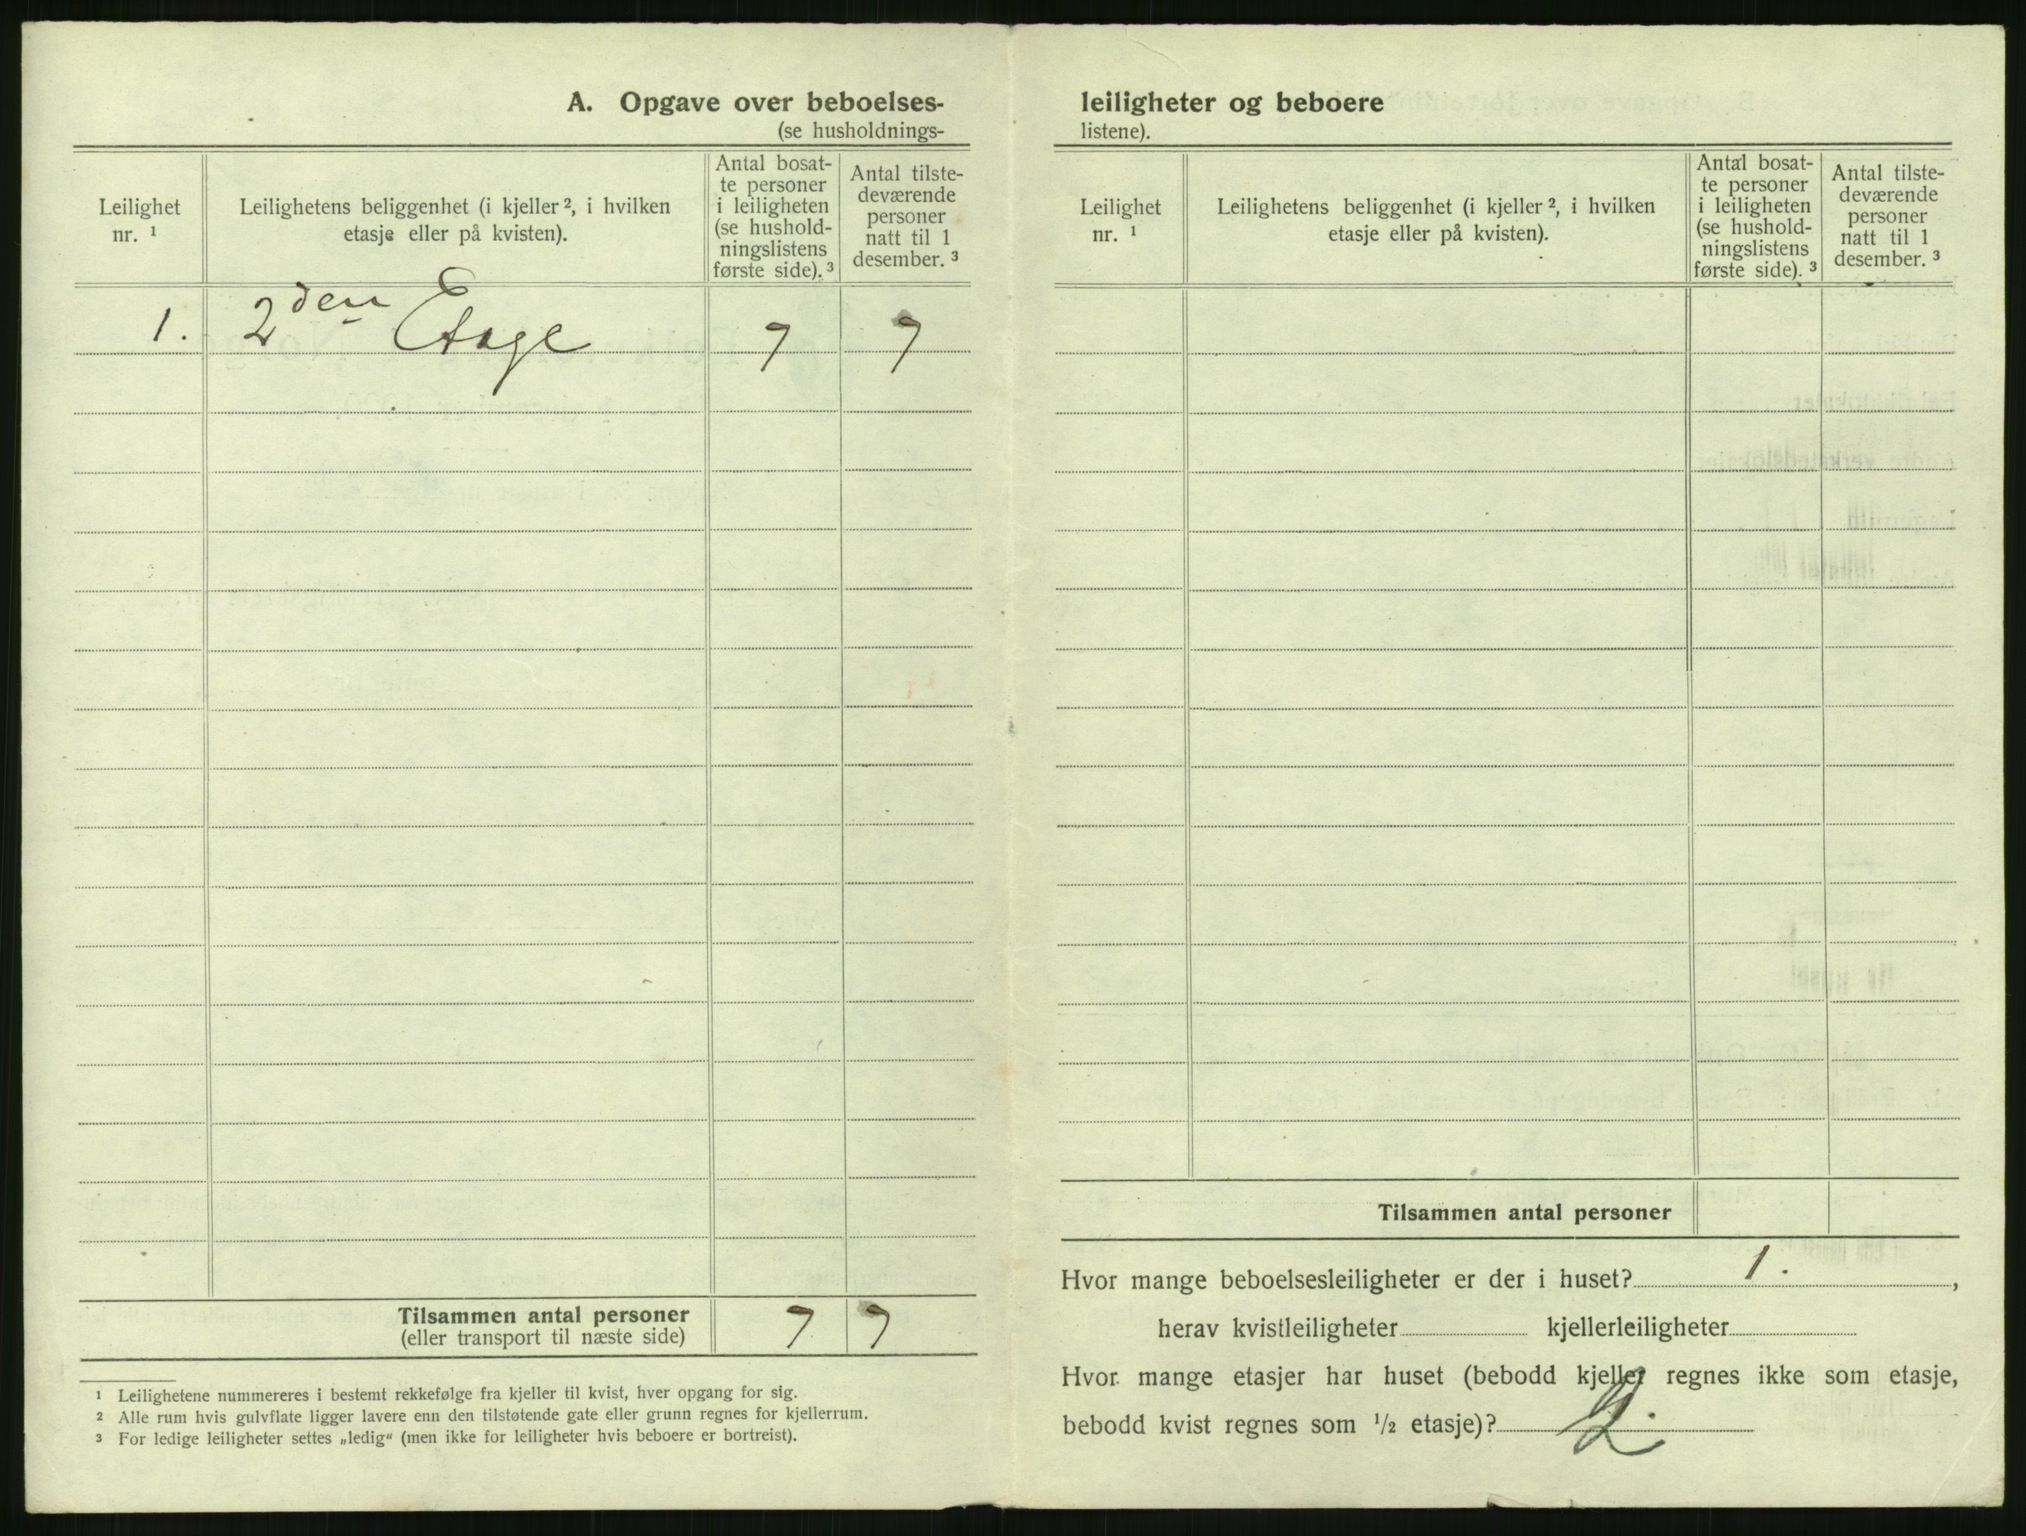 A. Opgave over beboelses-
(se husholdnings-
Leilighet
nr. ¹
Leilighetens beliggenhet (i kjeller ², i hvilken
etasje eller på kvisten).
Antal bosat-
te personer
i leiligheten
(se hushold-
ningslistens
første side). ³
Antal tilste-
deværende
personer
natt til 1
desember. ³
1. 2den Etage 7 7
Tilsammen antal personer 7 7
(eller transport til næste side)
¹ Leilighetene nummereres i bestemt rekkefølge fra kjeller til kvist, hver opgang for sig.
² Alle rum hvis gulvflate ligger lavere enn den tilstøtende gate eller grunn regnes for kjellerrum.
³ For ledige leiligheter settes „ledig“ (men ikke for leiligheter hvis beboere er bortreist).
leiligheter og beboere
listene).
Leilighet
nr. ¹
Leilighetens beliggenhet (i kjeller ², i hvilken
etasje eller på kvisten).
Antal bosat-
te personer
i leiligheten
(se hushold-
ningslistens
første side). ³
Antal tilste-
deværende
personer
natt til 1
desember. ³
Tilsammen antal personer
Hvor mange beboelsesleiligheter er der i huset? 1. ,
herav kvistleiligheter kjellerleiligheter
Hvor mange etasjer har huset (bebodd kjeller regnes ikke som etasje,
bebodd kvist regnes som ½ etasje)? 2.